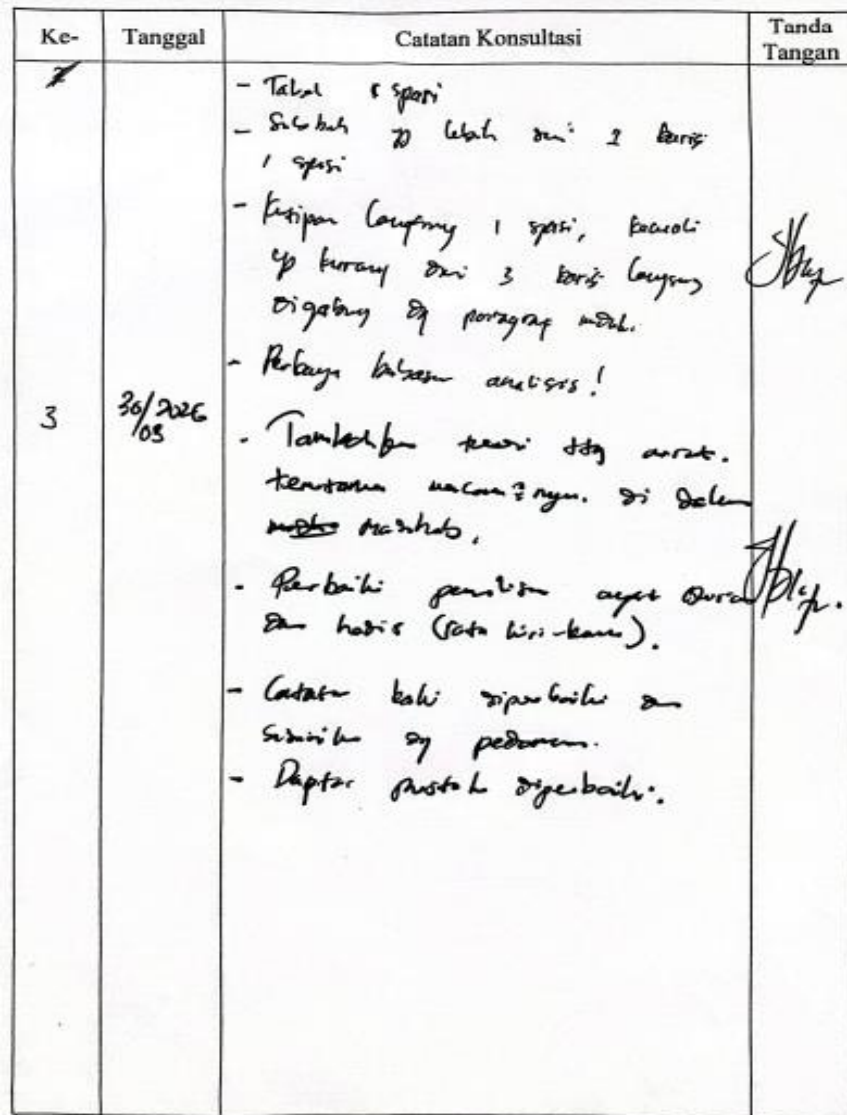 Ke- Tanggal Catatan Konsultasi Tanda Tangan
- Tabel 1 spasi
- Subbab yg lebih dari 1 baris
1 spasi
- Kutipan langsung 1 spasi, kecuali
yg kurang dari 3 baris langsung
digabung dg paragraf
- Perbanyak bahasan analisis!
3 30/2026
/03
- Tambahkan teori ttg
terutama macam2nya. di dalam
- Perbaiki penulisan ayat Quran
dan hadis (rata kiri-kanan).
- Catatan kaki diperbaiki dan
sesuaikan dg pedoman.
- Daftar pustaka diperbaiki.